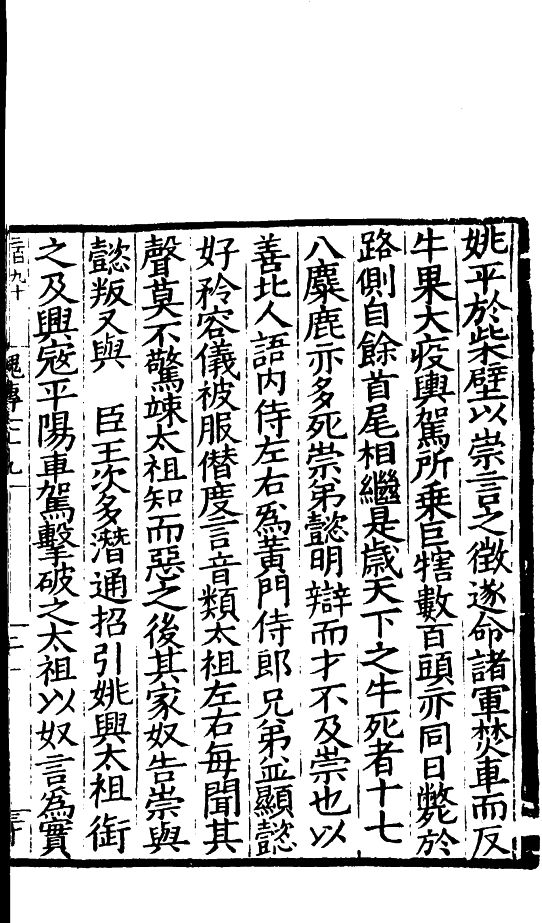 姚平於柴壁以崇言之徵遂命諸軍焚車而反
牛果大疫輿駕所乗巨犗數百頭亦同日斃於
路側自餘首尾相繼是歳天下之牛死者十七
八麋鹿亦多死崇弟懿明辯而才不及崇也以
善北人語內侍左右爲黃門侍郎兄弟並顯懿
好矜容儀被服僭度言音類太祖左右每聞其
聲莫不驚竦太祖知而惡之後其家奴告崇與
懿叛又與　臣王次多潛通招引姚興太祖銜
之及興寇平陽車駕擊破之太祖以奴言爲實
二百九十　魏傳七十九